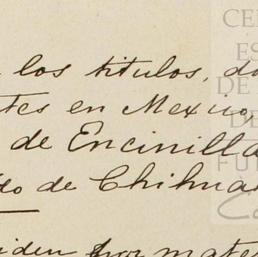 los titulos, do
tes en Mexico,
de Encinilla
do de Chihua
iden por mate
CE
ES
DE
DE
FU